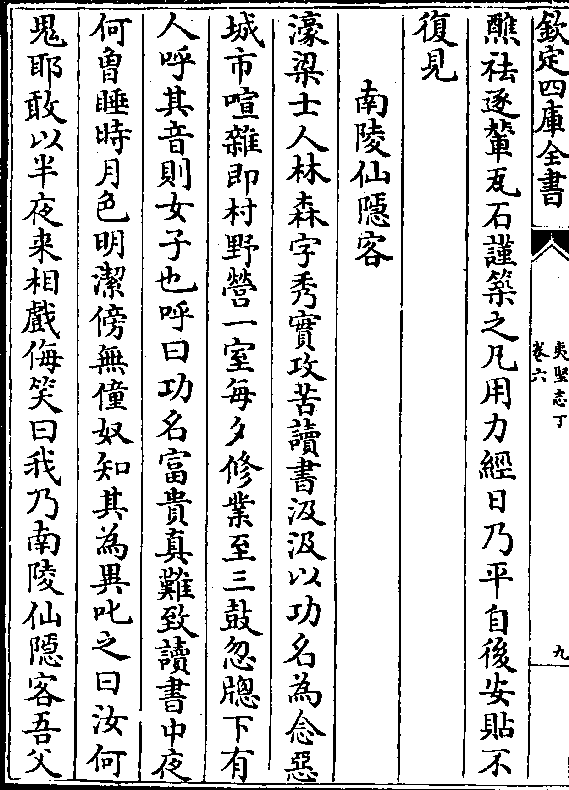 欽定四庫全書
夷堅志丁
卷六
九
醮祛逐輦瓦石謹築之凡用力經日乃平自後安貼不
復見
南陵仙隱客
濠梁士人林森字秀實攻苦讀書汲汲以功名為念惡
城市喧雜即村野營一室每夕修業至三鼓忽牎下有
人呼其音則女子也呼曰功名富貴真難致讀書中夜
何曾睡時月色明潔傍無僮奴知其為異叱之曰汝何
鬼耶敢以半夜来相戲侮笑曰我乃南陵仙隱客吾父